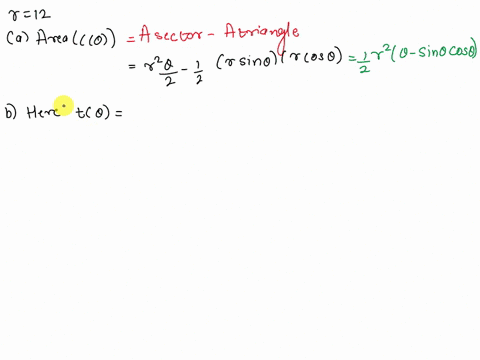 r=12
(a) Area(C(θ)) = A sector - A triangle
= r²θ/2 - 1/2 (r sinθ)(r cosθ) = 1/2 r²(θ - sinθ cosθ)
b) Here t(θ) =